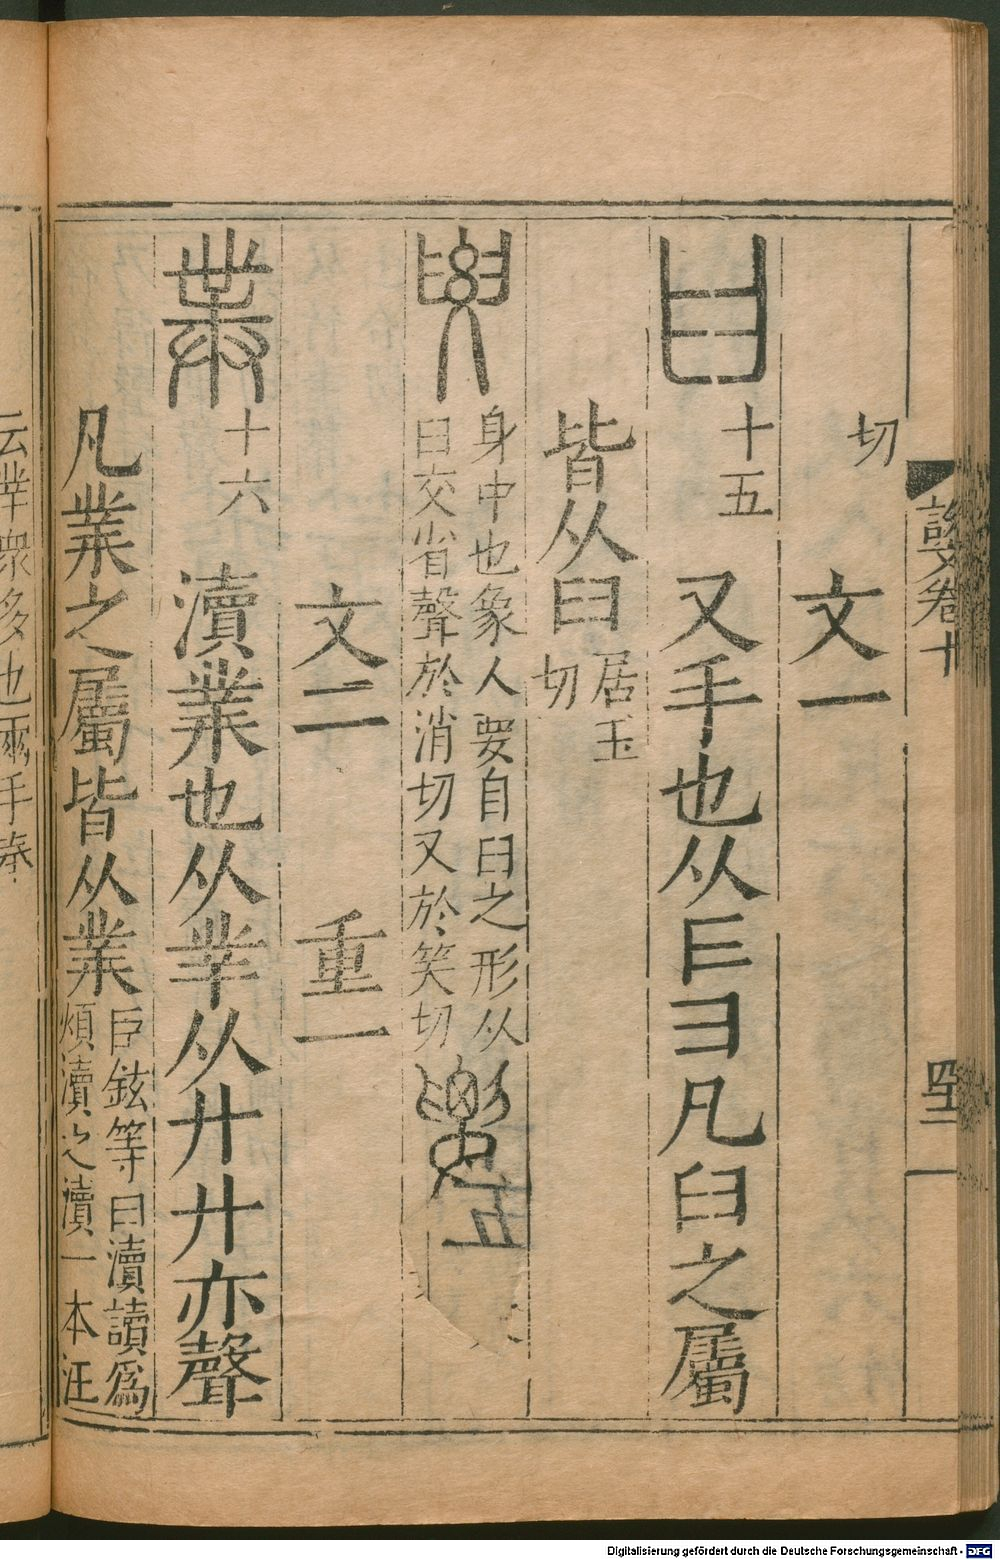 切
文一
𦥑
十五
又手也从𦣞彐凡𦥑之屬
皆从𦥑
居玉
切
身中也象人要自𦥑之形从
𦥑交省聲於消切又於笑切
古
文二 重一
菐
十六
瀆菐也从丵从廾廾亦聲
凡菐之屬皆从菐
臣鉉等曰瀆讀爲
煩瀆之瀆一本注
云丵衆多也兩手奉
卷十
Digitalisierung gefördert durch die Deutsche Forschungsgemeinschaft - DFG